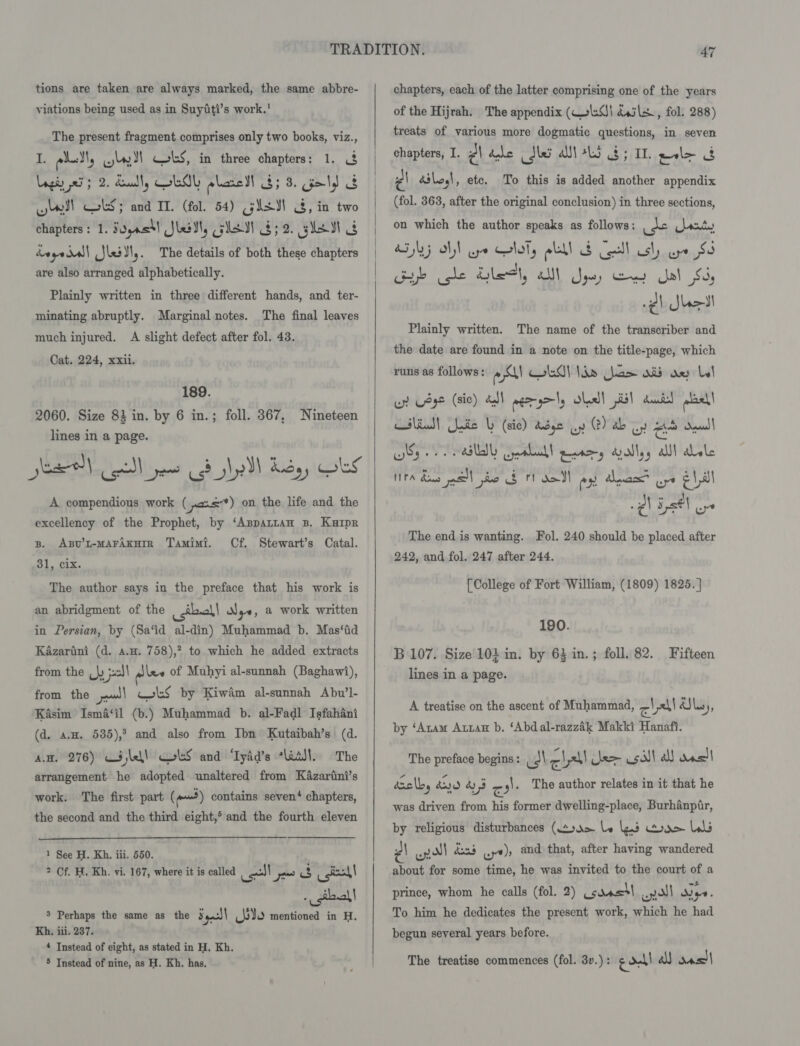 TRADITION. 47
tions are taken are always marked, the same abbre-
viations being used as in Suyûṭi’s work.¹
The present fragment comprises only two books, viz.,
I. كتاب الايمان والاسلام, in three chapters: 1. فى
تعريفهما ; 2. فى الاعتصام بالكتاب والسنة ; 3. فى لواحق
كتاب الايمان ; and II. (fol. 54) فى الاخلاق, in two
chapters : 1. فى الاخلاق والافعال المحمودة ; 2. فى الاخلاق
والافعال المذمومة. The details of both these chapters
are also arranged alphabetically.
Plainly written in three different hands, and ter-
minating abruptly. Marginal notes. The final leaves
much injured. A slight defect after fol. 43.
Cat. 224, xxii.
189.
2060. Size 8¾ in. by 6 in.; foll. 367. Nineteen
lines in a page.
كتاب روضة الابرار فى سير النبى المختار
A compendious work (مختصر) on the life and the
excellency of the Prophet, by ‘ABDALLAH B. KHIḌR
B. ABU’L-MAFÂKHIR TAMIMI. Cf. Stewart’s Catal.
31, cix.
The author says in the preface that his work is
an abridgment of the مولد المصطفى, a work written
in Persian, by (Sa‘îd al-dîn) Muḥammad b. Mas‘ûd
Kâzarûnî (d. A.H. 758),² to which he added extracts
from the معالم التنزيل of Muḥyi al-sunnah (Baghawî),
from the كتاب السير by Ḳiwâm al-sunnah Abu’l-
Ḳâsim Ismâ‘îl (b.) Muḥammad b. al-Faḍl Iṣfahânî
(d. A.H. 535),³ and also from Ibn Ḳutaibah’s (d.
A.H. 276) كتاب المعارف and ‘Iyâḍ’s الشفاء. The
arrangement he adopted unaltered from Kâzarûnî’s
work. The first part (قسم) contains seven⁴ chapters,
the second and the third eight,⁵ and the fourth eleven
¹ See H. Kh. iii. 550.
² Cf. H. Kh. vi. 167, where it is called المنتقى فى سير النبى
المصطفى.
³ Perhaps the same as the دلائل النبوة mentioned in H.
Kh. iii. 237.
⁴ Instead of eight, as stated in H. Kh.
⁵ Instead of nine, as H. Kh. has.
chapters, each of the latter comprising one of the years
of the Hijrah. The appendix (خاتمة الكتاب, fol. 288)
treats of various more dogmatic questions, in seven
chapters, I. فى ثناء الله تعالى عليه الخ ; II. فى جامع
اوصافه الخ, etc. To this is added another appendix
(fol. 363, after the original conclusion) in three sections,
on which the author speaks as follows: يشتمل على
ذكر من راى النبىّ فى المنام وآداب من اراد زيارته
وذكر اهل بيت رسول الله والصحابة على طريق
الاجمال الخ.
Plainly written. The name of the transcriber and
the date are found in a note on the title-page, which
runs as follows: اما بعد فقد حصّل هذا الكتاب المكرم
المعظم لنفسه افقر العباد واحوجهم اليه (sic) عوض بن
السيد شيخ بن طه (?) بن عوضه (sic) با عقيل السقاف
عامله الله ووالديه وجميع المسلمين بالطافه .... وكان
الفراغ من تحصيله يوم الاحد ٢١ فى صفر الخير سنة ١١٢٨
من الهجرة الخ.
The end is wanting. Fol. 240 should be placed after
242, and fol. 247 after 244.
[College of Fort William, (1809) 1825.]
190.
B 107. Size 10¾ in. by 6¾ in.; foll. 82. Fifteen
lines in a page.
A treatise on the ascent of Muḥammad, رسالة المعراج,
by ‘AZAM ALLAH b. ‘Abd al-razzâḳ Makkî Ḥanafî.
The preface begins: الحمد لله الذى جعل المعراج الى
اوج قربة دينه وطاعته. The author relates in it that he
was driven from his former dwelling-place, Burhânpûr,
by religious disturbances (فلما حدث فيها ما حدث
من فتنة الدين الخ), and that, after having wandered
about for some time, he was invited to the court of a
prince, whom he calls (fol. 2) مؤيد الدين المحمدى.
To him he dedicates the present work, which he had
begun several years before.
The treatise commences (fol. 3v.): الحمد لله المبدع